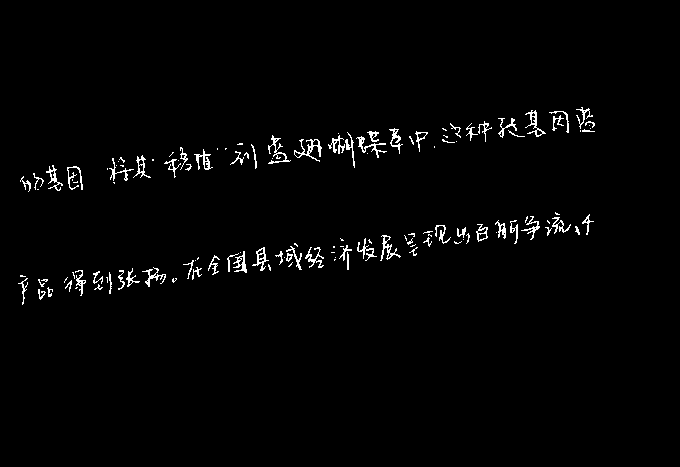 的基因 将其“移植”到蓝翅蝴蝶卒中,这种转基因蓝
产品得到张扬。在全国县域经济发展呈现出百舸争流、千